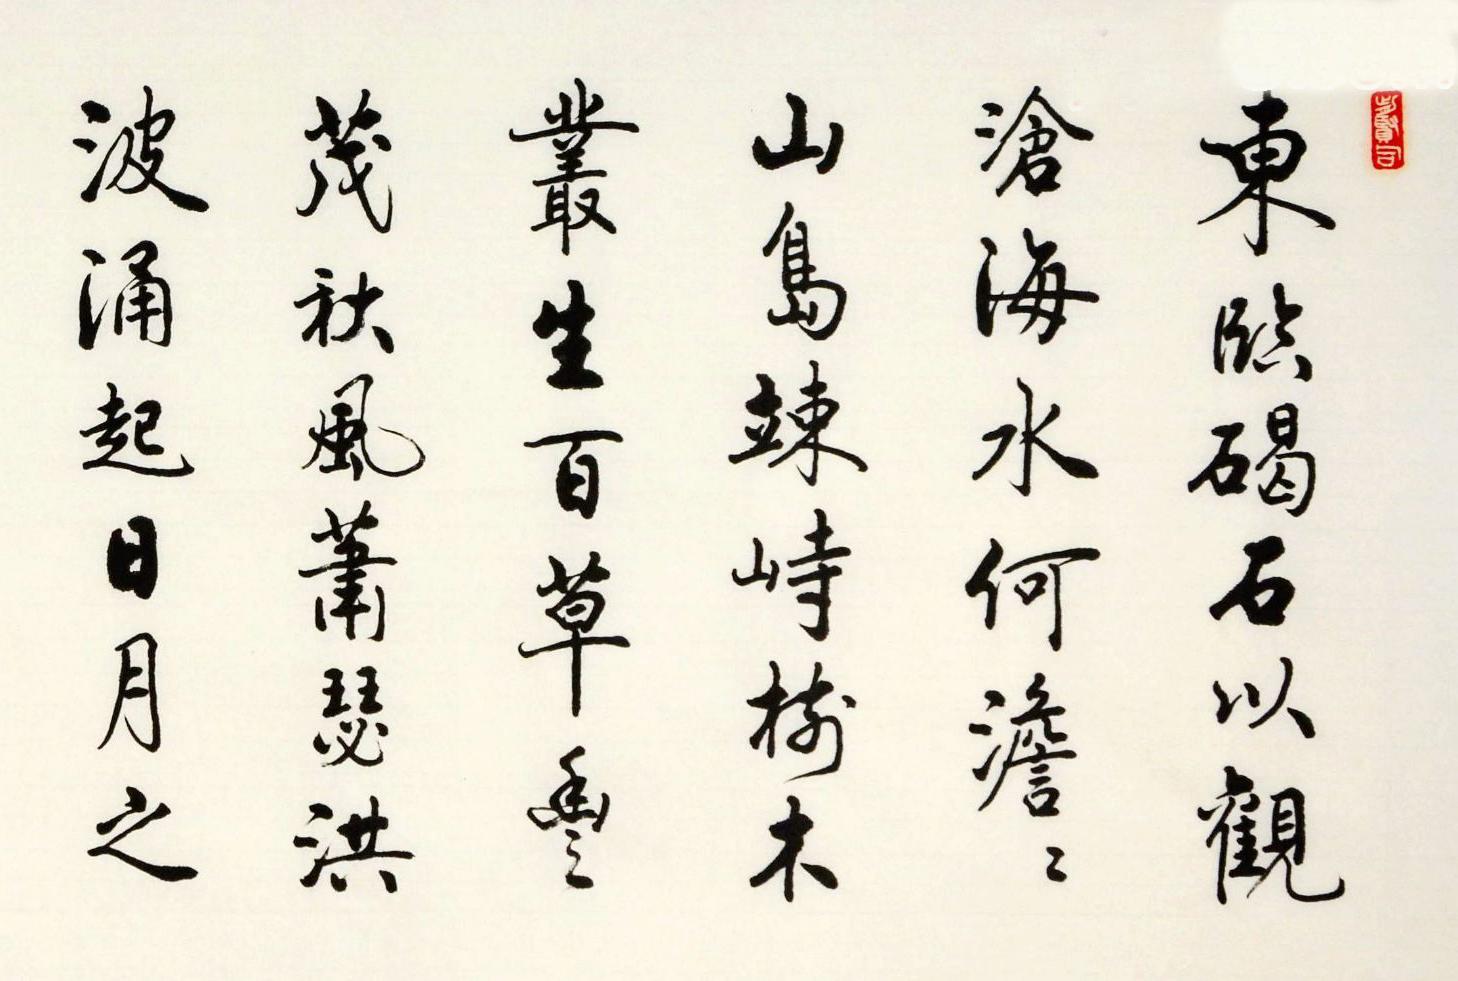 東臨碣石以觀
滄海水何澹々
山島竦峙樹木
叢生百草豐
茂秋風蕭瑟洪
波涌起日月之